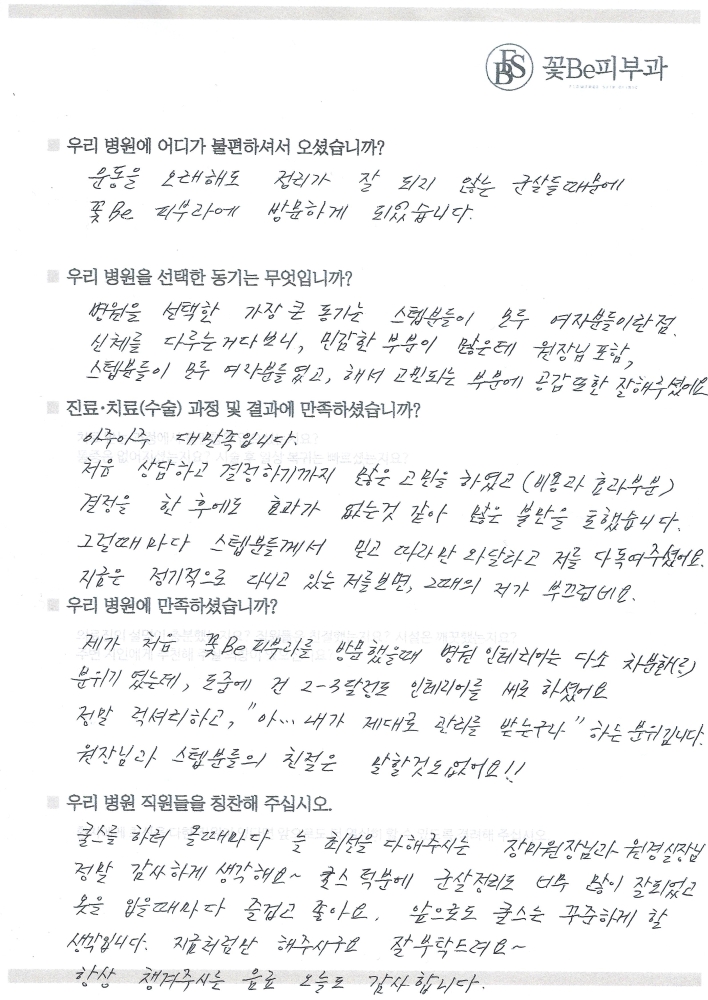 BFS 꽃Be피부과
우리 병원에 어디가 불편하셔서 오셨습니까?
운동을 오래해도 정리가 잘 되지 않는 군살들때문에
꽃Be 피부과에 방문하게 되었습니다.
우리 병원을 선택한 동기는 무엇입니까?
병원을 선택한 가장 큰 동기는 스텝분들이 모두 여자분들이란점.
신체를 다루는거다보니, 민감한 부분이 많은데 원장님 포함,
스텝분들이 모두 여자분들였고, 해서 고민되는 부분에 공감또한 잘해주셨어요
진료·치료(수술) 과정 및 결과에 만족하셨습니까?
아주아주 대만족입니다.
처음 상담하고 결정하기까지 많은 고민을 하였고 (비용과 효과부분)
결정을 한 후에도 효과가 없는것 같아 많은 불만을 토했습니다.
그럴때마다 스텝분들께서 믿고 따라만 와달라고 저를 다독여주셨어요.
지금은 정기적으로 다니고 있는 저를보면, 그때의 저가 부끄럽네요.
우리 병원에 만족하셨습니까?
제가 처음 꽃Be피부과를 방문했을때 병원 인테리어는 다소 차분한(?)
분위기 였는데, 도중에 건 2-3달정도 인테리어를 새로 하셨어요
정말 럭셔리하고, "아... 내가 제대로 관리를 받는구나" 하는 분위깁니다.
원장님과 스텝분들의 친절은 말할것도없어요!!
우리 병원 직원들을 칭찬해 주십시오.
쿨스를 하러 올때마다 늘 최선을 다해주시는 장미원장님과 원경실장님
정말 감사하게 생각해요~ 쿨스 덕분에 군살정리도 너무 많이 잘되었고
옷을 입을때마다 즐겁고 좋아요. 앞으로도 쿨스는 꾸준하게 할
생각입니다. 지금처럼만 해주시구요 잘부탁드려요~
항상 챙겨주시는 음료 오늘도 감사합니다.